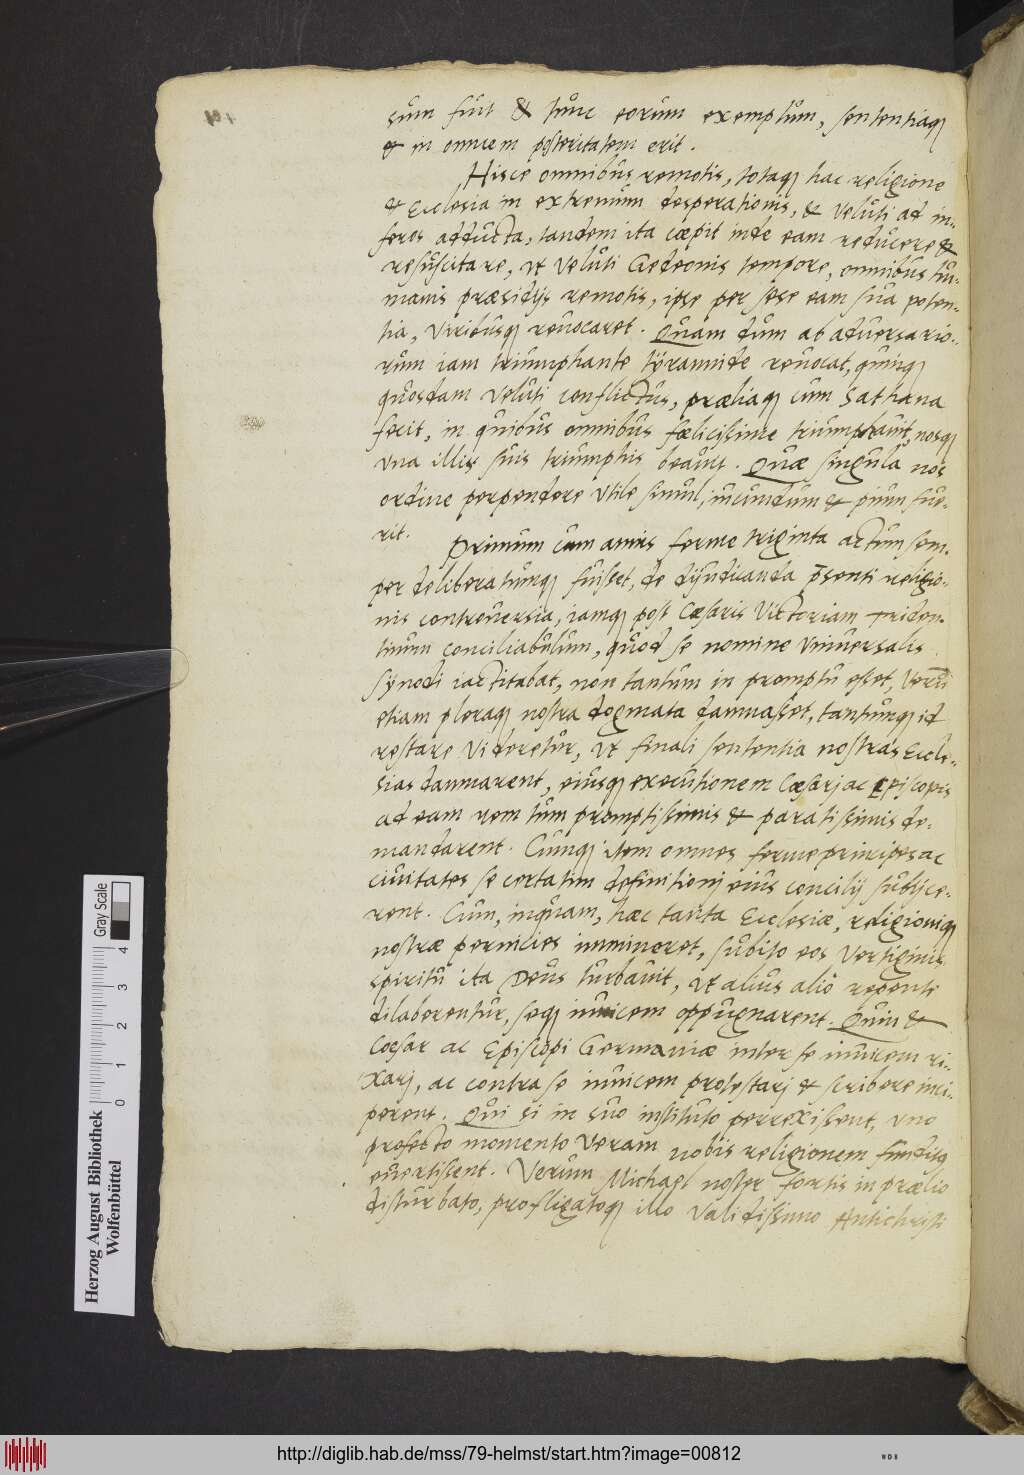 sum fuit & tunc eorum exemplum, sententiaq[ue]
& in omnem posteritatem erit.
Hisce omnibus remotis, totaq[ue] hac religione
& Ecclesia in extremum desperationis, & veluti ad in-
feros adducta, tandem ita cœpit inde eam reducere &
resuscitare, ut veluti Gedeonis tempore, omnibus hu-
manis præsidijs remotis, ipse per sese eam sua poten-
tia, viribusq[ue] reuocaret. Quam dum ab aduersario-
rum iam triumphante tÿrannide reuocat, quinq[ue]
quosdam veluti conflictus, præliaq[ue] cum Sathana
fecit, in quibus omnibus fœlicissime triumphauit, nosq[ue]
vna illis suis triumphis beauit. Quæ singula nos
ordine perpendere vtile simul, iucundum & pium fue-
rit.
Primum cum annis ferme triginta actum sem-
per deliberatumq[ue] fuisset, de dijudicanda p̄senti religio-
nis controuersia, iamq[ue] post Cæsaris Victoriam Triden-
tinum conciliabulum, quod se nomine vniuersalis
Sÿnodi iactitabat, non tantum in promptu esset, verū
etiam pleraq[ue] nostra dogmata damnasset, tantumq[ue] id
restare videretur, ut finali sententia nostras Eccle-
sias damnarent, eiusq[ue] executionem Cæsarj ac Episcopis
ad eam rem tum promptissimis & paratissimis de-
mandarent. Cumq[ue] item omnes ferme principes ac
ciuitates se certatim definitionj eius concilij subijce-
rent. Cum, inquam, hæc tanta Ecclesiæ, religioniq[ue]
nostræ pernicies immineret, subito eos vertiginis
spiritu ita Deus turbauit, ut alius alio repente
dilaberentur, seq[ue] inuicem oppugnarent. Quin &
Cæsar ac Episcopi Germaniæ inter se inuicem ri-
xarj, ac contra se inuicem protestarj & scribere inci-
perent. Qui si in suo instituto perrexissent, vno
profecto momento veram nobis religionem funditq[ue]
euertissent. Verum Michael noster fortis in prælio
disturbato, profligatoq[ue] illo validissimo Antichristi
Herzog August Bibliothek
Wolfenbüttel
Gray Scale
0 1 2 3 4
http://diglib.hab.de/mss/79-helmst/start.htm?image=00812